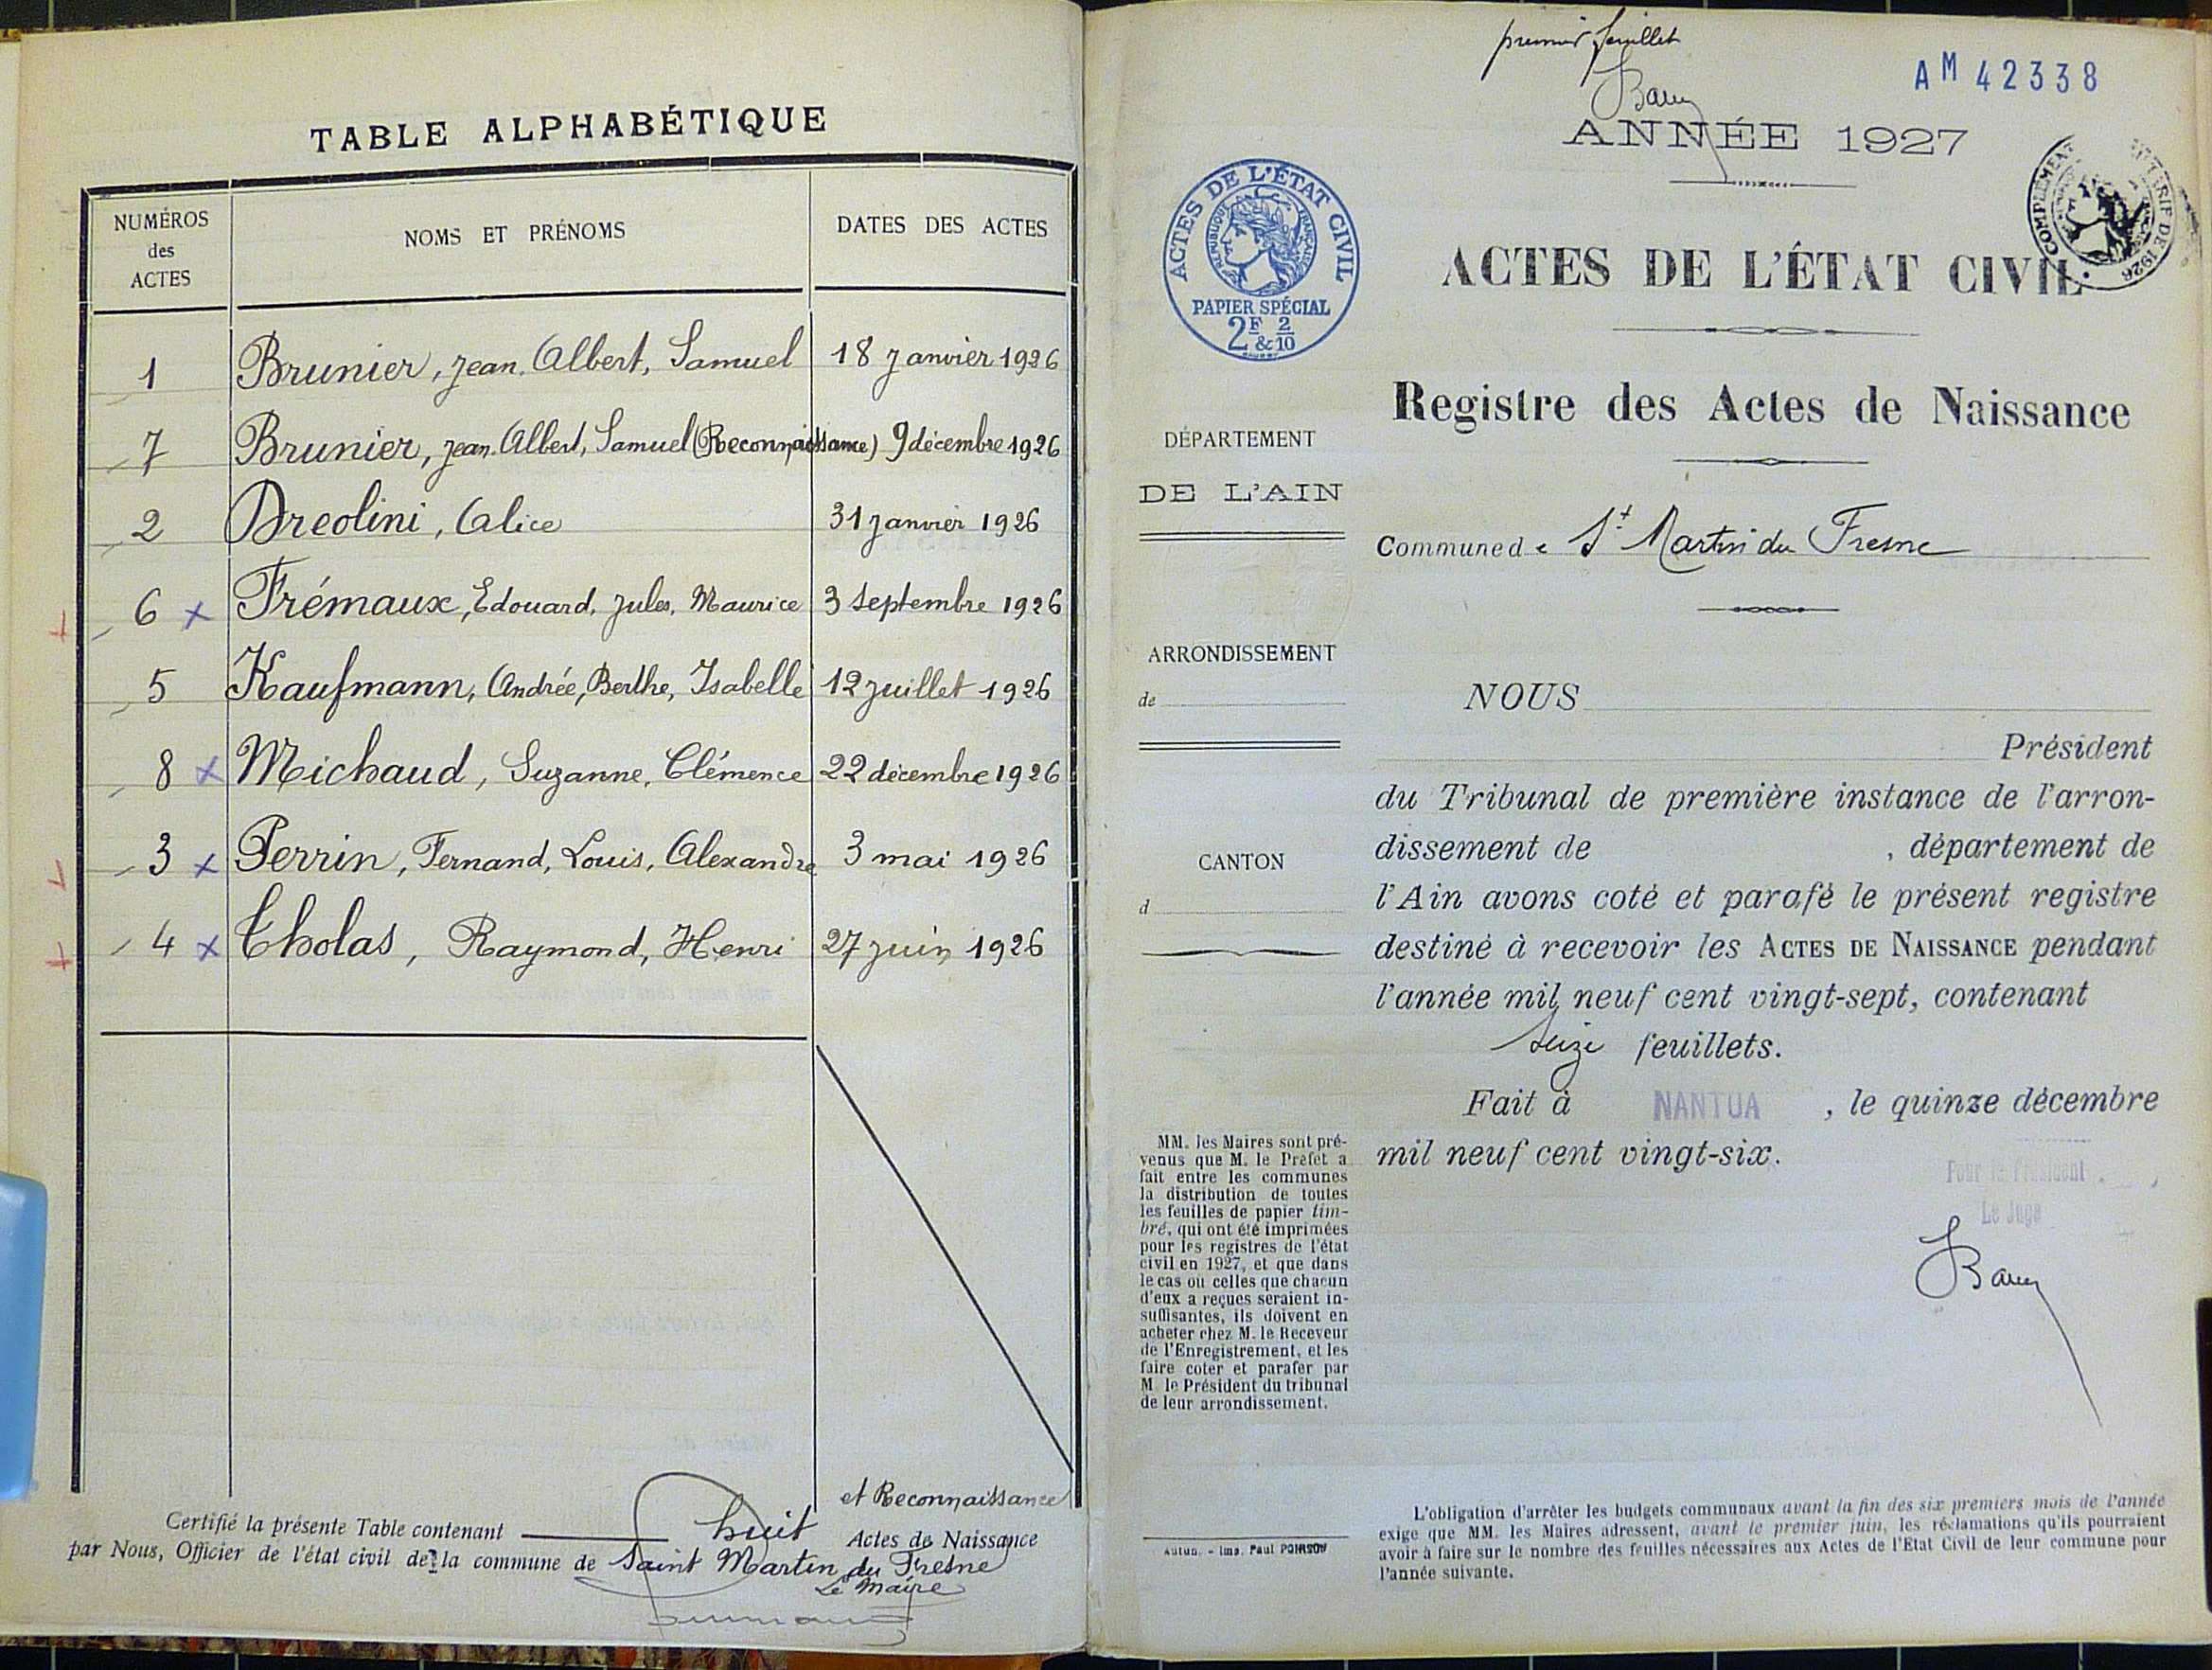 TABLE ALPHABÉTIQUE
NUMÉROS des ACTES NOMS ET PRÉNOMS DATES DES ACTES
1 Brunier, Jean, Albert, Samuel 18 Janvier 1926
7 Brunier, Jean, Albert, Samuel (Reconnaissance) 9 décembre 1926
2 Dreolini, Alice 31 Janvier 1926
6 x Frémaux, Edouard, Jules, Maurice 3 Septembre 1926
5 Kaufmann, Andrée, Berthe, Isabelle 12 Juillet 1926
8 x Michaud, Suzanne, Clémence 22 décembre 1926
3 x Perrin, Fernand, Louis, Alexandre 3 mai 1926
4 x Tholas, Raymond, Henri 27 Juin 1926
et Reconnaissance
Certifié la présente Table contenant huit Actes de Naissance
par Nous, Officier de l'état civil de la commune de Saint Martin du Fresne
Le Maire
premier feuillet
AM 42338
ANNÉE 1927
ACTES DE L'ÉTAT CIVIL
RÉPUBLIQUE FRANÇAISE
PAPIER SPÉCIAL
2F & 2/10
COMPLÉMENT TARIF DE 1926
ACTES DE L'ÉTAT CIVIL
Registre des Actes de Naissance
DÉPARTEMENT
DE L'AIN
Commune de St Martin du Fresne
ARRONDISSEMENT
de
CANTON
d
NOUS
Président
du Tribunal de première instance de l'arron-
dissement de , département de
l'Ain avons coté et parafé le présent registre
destiné à recevoir les ACTES DE NAISSANCE pendant
l'année mil neuf cent vingt-sept, contenant
seize feuillets.
Fait à NANTUA , le quinze décembre
mil neuf cent vingt-six.
Pour le Président
Le Juge
MM. les Maires sont pré-
venus que M. le Préfet a
fait entre les communes
la distribution de toutes
les feuilles de papier tim-
bré, qui ont été imprimées
pour les registres de l'état
civil en 1927, et que dans
le cas où celles que chacun
d'eux a reçues seraient in-
suffisantes, ils doivent en
acheter chez M. le Receveur
de l'Enregistrement, et les
faire coter et parafer par
M. le Président du tribunal
de leur arrondissement.
Autun. - Imp. Paul POIRSON
L'obligation d'arrêter les budgets communaux avant la fin des six premiers mois de l'année
exige que MM. les Maires adressent, avant le premier juin, les réclamations qu'ils pourraient
avoir à faire sur le nombre des feuilles nécessaires aux Actes de l'Etat Civil de leur commune pour
l'année suivante.